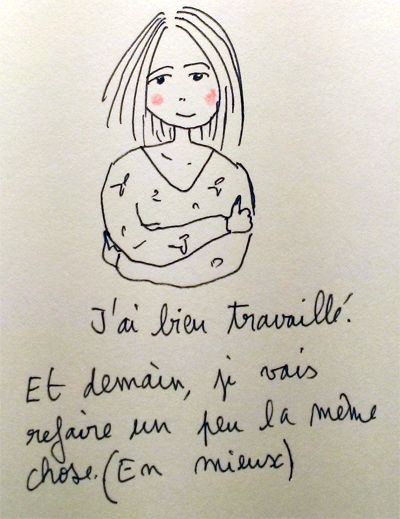 J'ai bien travaillé.
Et demain, je vais
refaire un peu la même
chose. (En mieux)